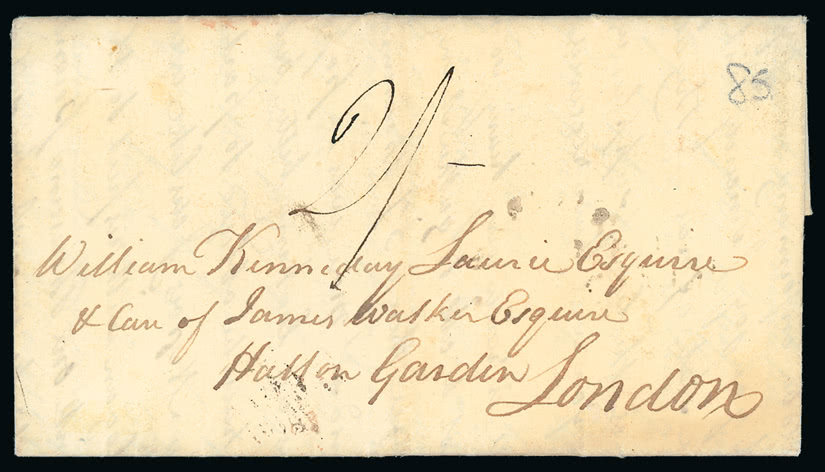 85
2/-
William Kenneday Laurie Esquire
& Care of James Walker Esquire
Hatton Garden
London